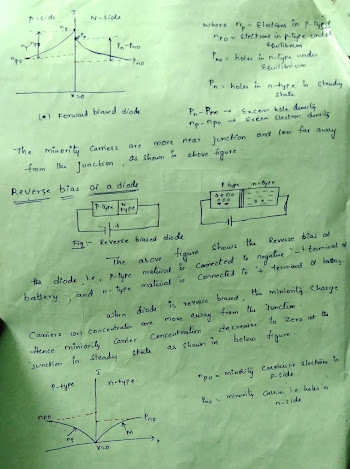 P-side
N-side
I
np
npo
Pn-Pno
Pno
x=0
(a) Forward biased diode
where np = Electrons in p-type
npo = electrons in p-type under
Equilibrium
Pno = holes in n-type under
Equilibrium
Pn = holes in n-type in steady
state
Pn-Pno → Excess hole density
np-npo → Excess Electron density
The minority Carriers are more near junction and low far away
from the junction, as shown in above figure.
Reverse bias of a diode
P-type
N-type
- +
P type
n-type
Fig:- Reverse biased diode
The above figure shows the Reverse bias of
the diode, i.e., P-type material is connected to negative '-' terminal of
battery, and n-type material is connected to '+' terminal of battery.
When diode is reverse biased, the minority charge
Carriers concentration are more away from the junction.
Hence minority Carrier Concentration decreases to zero at the
junction in steady state as shown in below figure.
P-type
I
n-type
npo
np
Pno
Pn
x=0
x
npo = minority carriers electrons in
P-side
Pno = minority carriers i.e. holes in
n-side